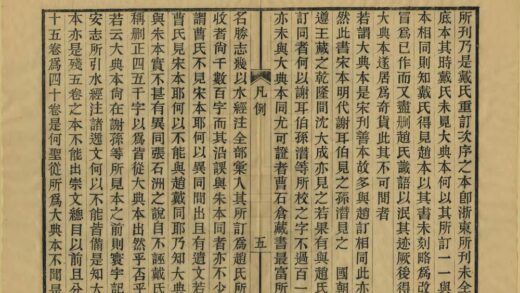 所刋乃是戴氏重訂次序之本卽浙東所刋未全
底本其時戴氏未見大典本何以其所訂一一與
本相同則知戴氏得見趙本以其書未刻略爲改
冒爲己作而又盡刪趙氏識語以泯其迹厥後得
大典本遂居爲奇貨此其不可閒者
若謂大典本是宋刋善本故多與趙訂相同此亦
然此書宋本明代謝耳伯見之孫潛見之 國朝
遵王藏之乾隆間沈大成亦見之若果有與趙氏
訂同者何以謝耳伯孫潛等所校之字不過百一
亦未與大典本同尤可證者曹石倉藏書最富所
凡例
五
名勝志幾以水經注全部彙入其所訂爲趙氏所
收者尙千數百字而其沿誤與朱本同者亦不少
謂曹氏不見宋本耶何以異同間出且有遺文若
曹氏見宋本耶何以不能與趙戴同耶乃知大典
與朱本實不甚有異同張石洲之說自不誣戴氏
稱刪正四五千字以爲皆從大典本出然乎否乎
若云大典本尙在謝孫等所見本之前則寰宇記
安志所引水經注諸逸文何以不能皆備是知大
本亦是殘五卷之本不能出崇文總目以前且分
十五卷爲四十卷是何聖從所爲大典本不聞是